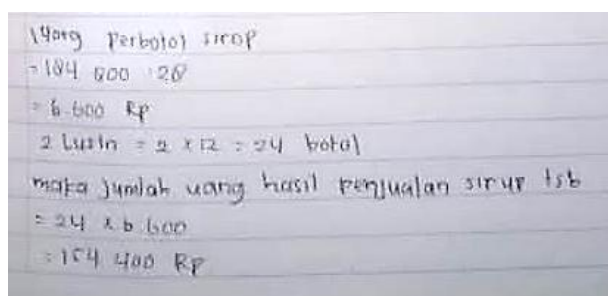 Uang perbotol sirop
= 184 800 : 28
= 6.600 Rp
2 lusin = 2 x 12 = 24 botol
maka jumlah uang hasil penjualan sirup tsb
= 24 x 6 600
= 154 400 Rp